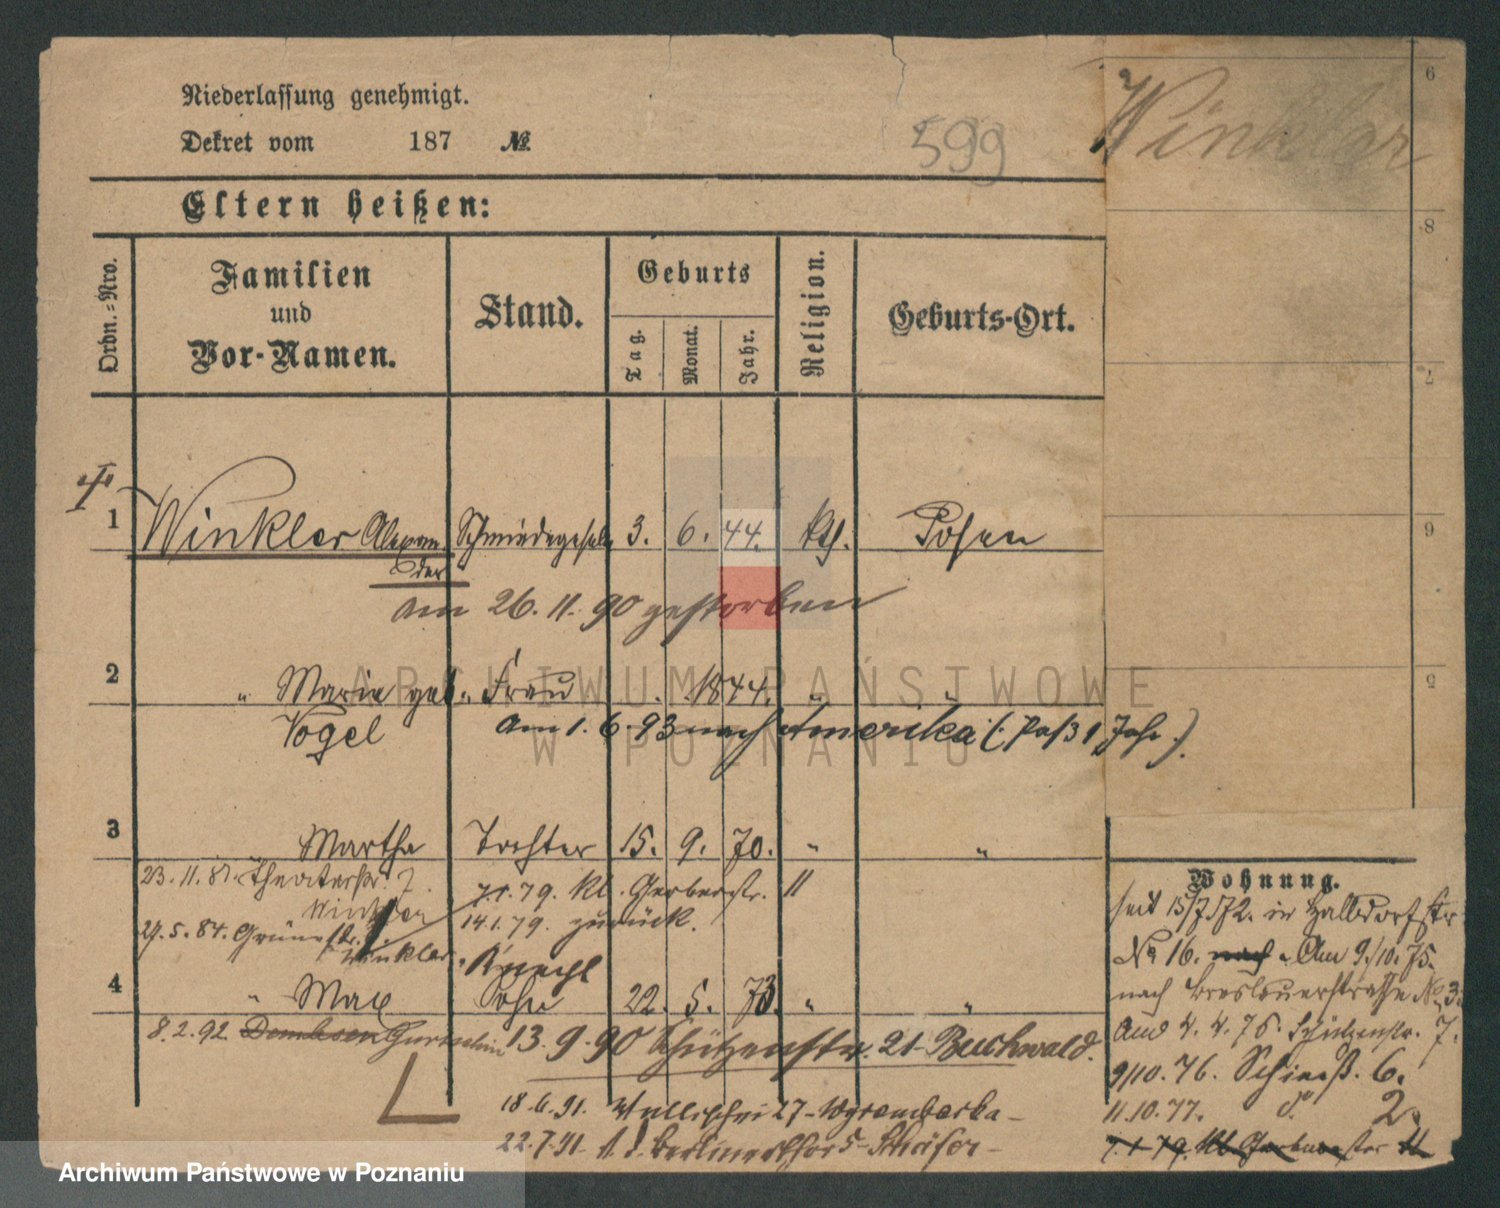 Niederlassung genehmigt.
Dekret vom 187 №
599
Winkler
Eltern heißen:
Ordn.-Nro.
Familien
und
Vor-Namen.
Stand.
Geburts
Tag.
Monat.
Jahr.
Religion.
Geburts-Ort.
6
8
7
6
5
1 Winkler Alexan Schmiedegeselle 3. 6. 44. kth. Posen
der
am 26. 11. 90 gestorben
2 " Marie geb. Frau 1844. " "
Vogel am 1. 6. 93 nach Amerika (: Paß 1 Jahr :)
3 Martha Tochter 15. 9. 70. " "
23. 11. 81. Theaterstr. 7. 7.1.79. Kl. Gerberstr. 11
Winkler 14.1.79. zurück.
29. 5. 84. Grünestr.
Winkler
Knecht
4 " Max Sohn 22. 5. 73. " "
8. 2. 92. Dembsen Gurtschin 13. 9. 90 Schützenstr. 21 - Buchwald.
18. 6. 91. Wallischei 27 -
22. 7. 91. Berlinerthor 5 - Schäfer -
Wohnung.
seit 15/7 72. in Halbdorfstr
No 16. nach Am 9/10. 75.
nach Breslauerstrasse No 3.
And 4. 4. 76. Schützenstr. 7.
9/10. 76. Schieß. 6.
11. 10. 77. d° 2.
7. 1. 79. Kl. Gerberstr 11
ARCHIWUM PAŃSTWOWE
W POZNANIU
Archiwum Państwowe w Poznaniu